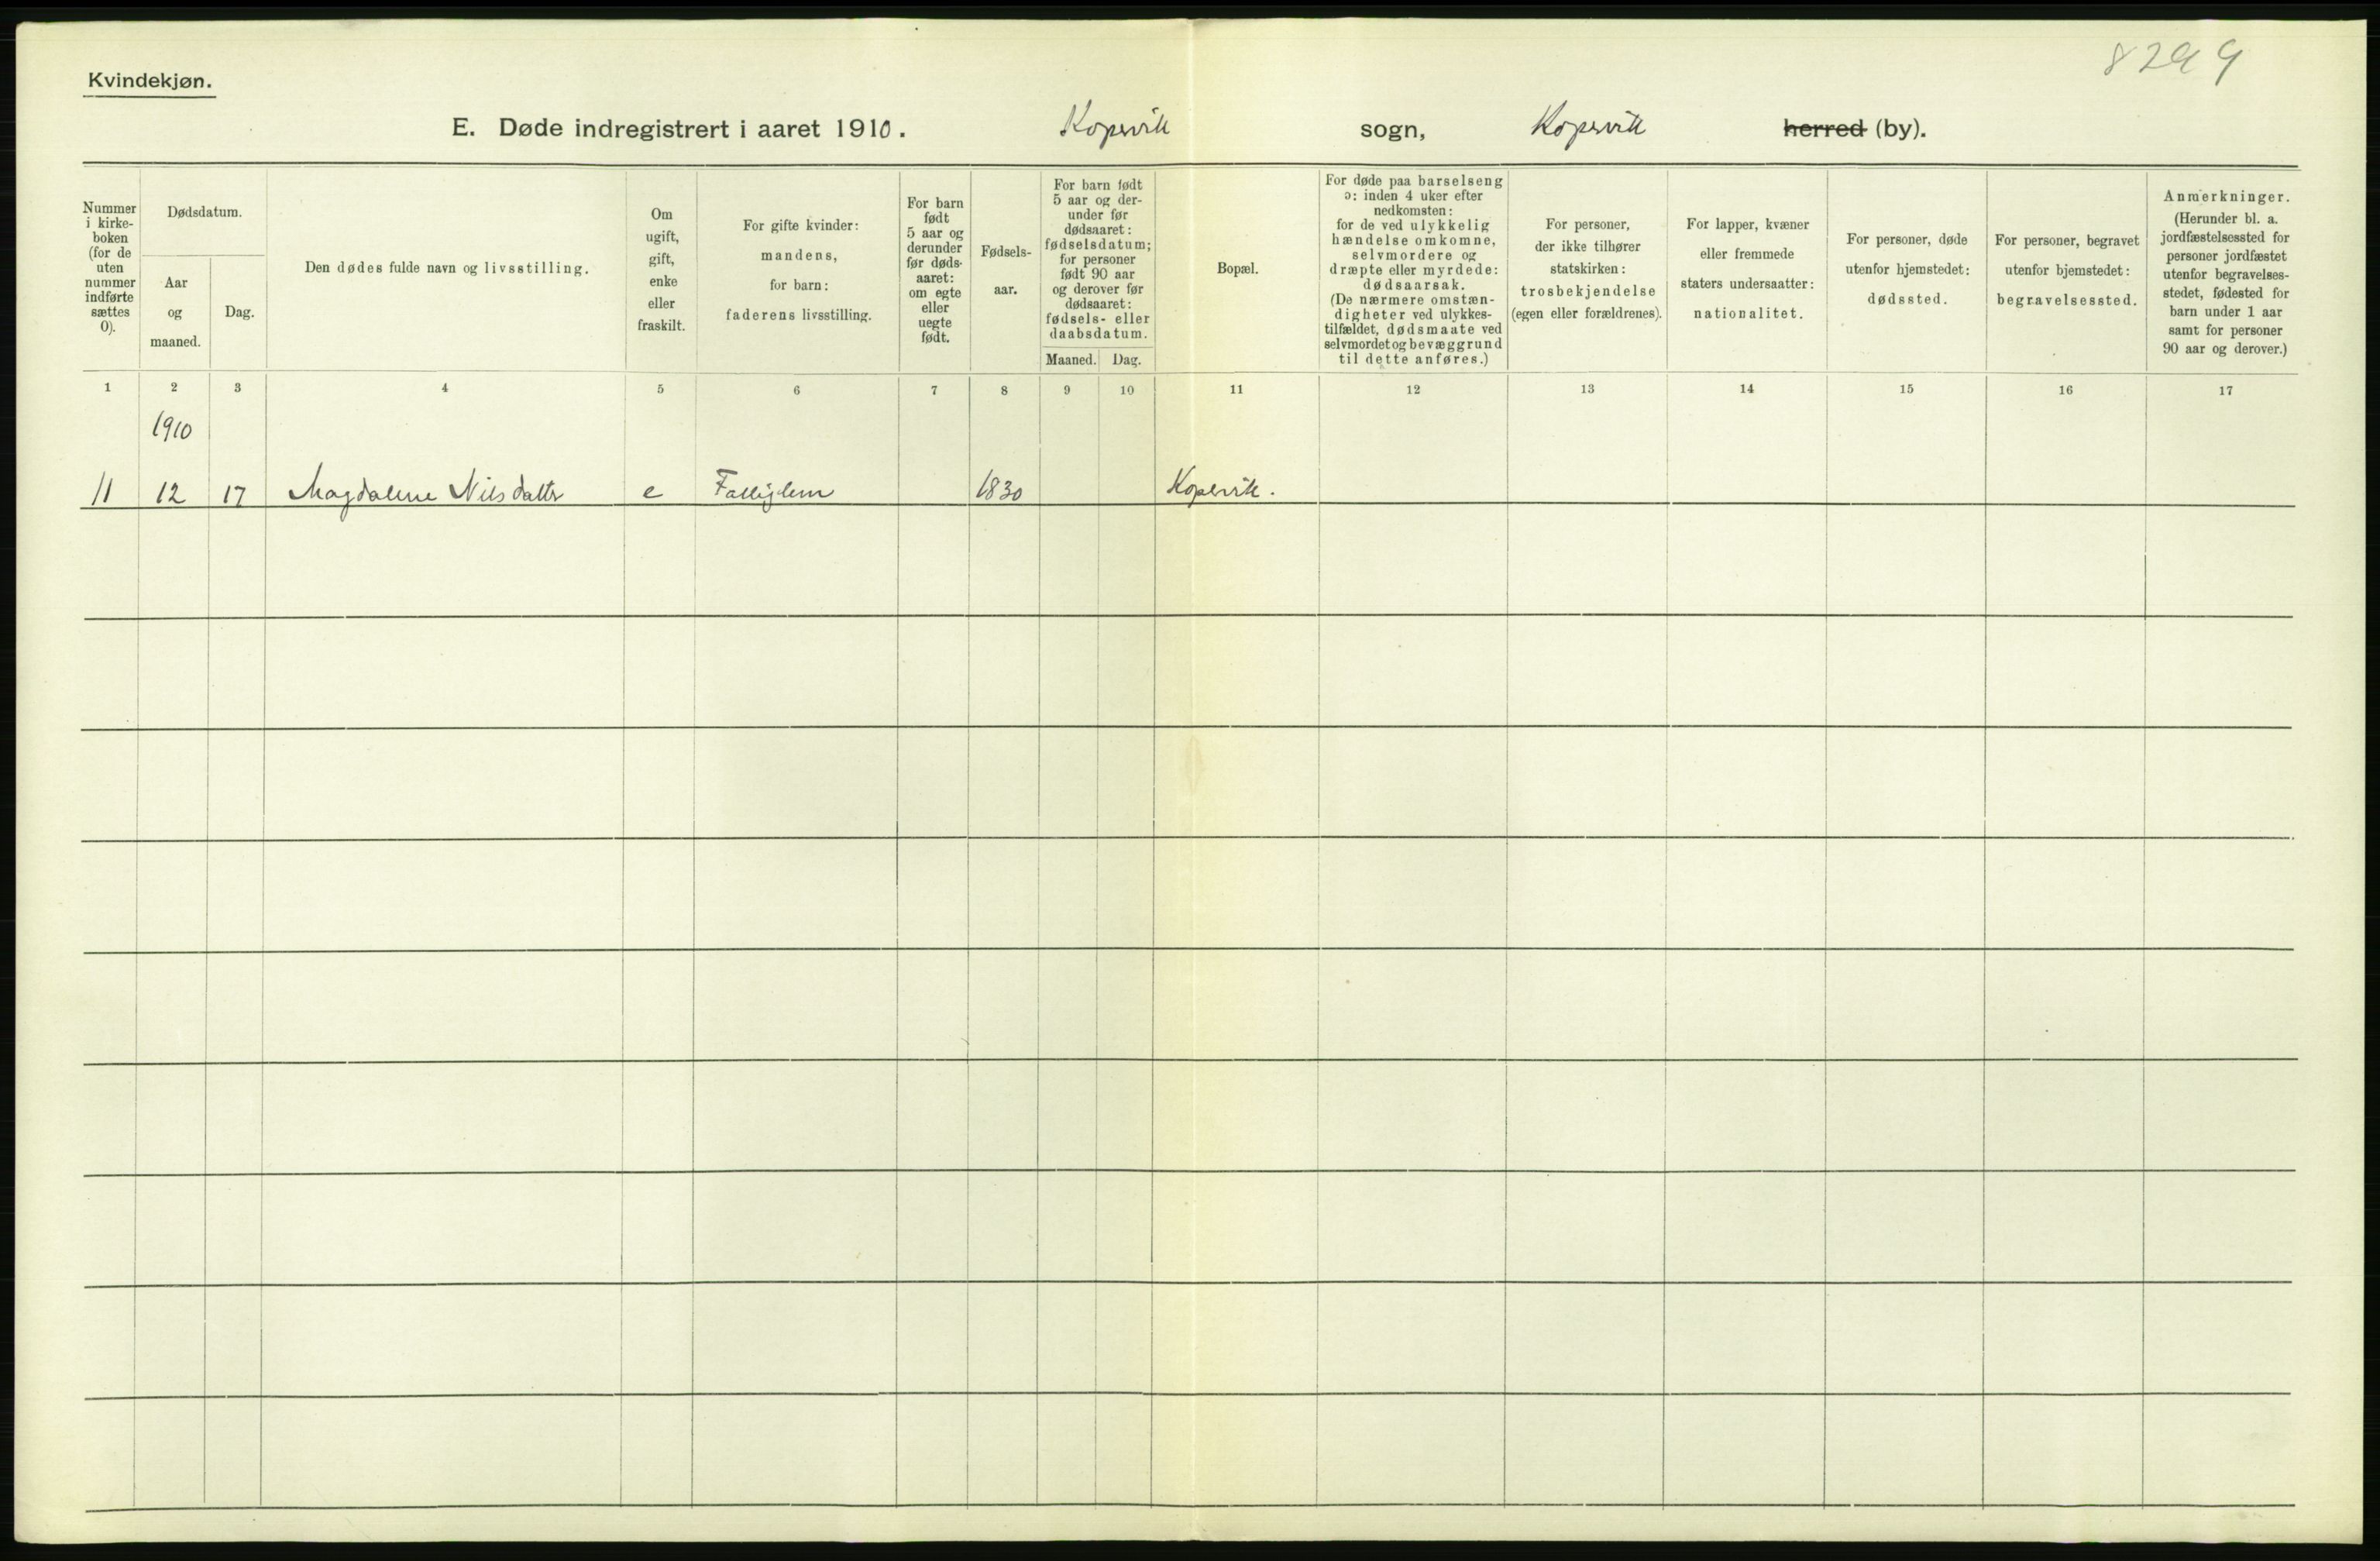 8299
Kvindekjøn.
E. Døde indregistrert i aaret 1910. Kopervik sogn, Kopervik herred (by).
Nummer i kirke-boken (for de uten nummer indførte sættes 0).
Dødsdatum.
Aar og maaned.
Dag.
Den dødes fulde navn og livsstilling.
Om ugift, gift, enke eller fraskilt.
For gifte kvinder: mandens, for barn: faderens livsstilling.
For barn født 5 aar og derunder før døds-aaret: om egte eller uegte født.
Fødsels-aar.
For barn født 5 aar og der-under før dødsaaret: fødselsdatum; for personer født 90 aar og derover før dødsaaret: fødsels- eller daabsdatum.
Maaned. Dag.
Bopæl.
For døde paa barselseng ɔ: inden 4 uker efter nedkomsten: for de ved ulykkelig hændelse omkomne, selvmordere og dræpte eller myrdede: dødsaarsak. (De nærmere omstæn-digheter ved ulykkes-tilfældet, dødsmaate ved selvmordet og bevæggrund til dette anføres.)
For personer, der ikke tilhører statskirken: trosbekjendelse (egen eller forældrenes).
For lapper, kvæner eller fremmede staters undersaatter: nationalitet.
For personer, døde utenfor hjemstedet: dødssted.
For personer, begravet utenfor bjemstedet: begravelsessted.
Anmerkninger. (Herunder bl. a. jordfæstelsessted for personer jordfæstet utenfor begravelses-stedet, fødested for barn under 1 aar samt for personer 90 aar og derover.)
1 2 3 4 5 6 7 8 9 10 11 12 13 14 15 16 17
1910
11 12 17 Magdalene Nilsdatter e Fattiglem 1830 Kopervik.